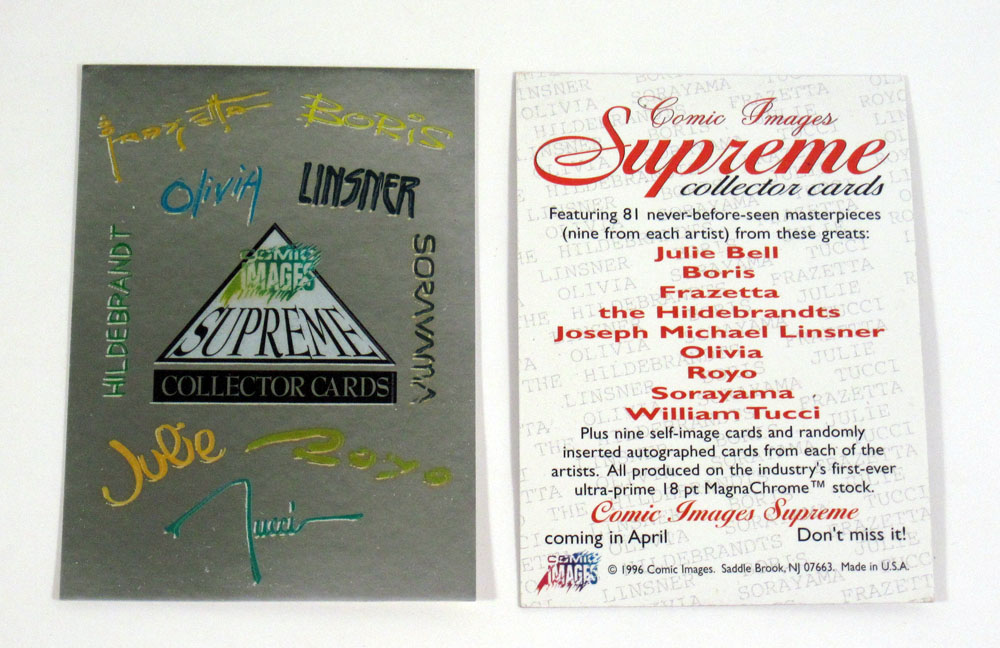 Frazetta
BORIS
OliviA
LINSNER
HILDEBRANDT
SORAYAMA
COMIC
IMAGES
SUPREME
COLLECTOR CARDS
Julie
Royo
Tucci
Comic Images
Supreme
collector cards
Featuring 81 never-before-seen masterpieces
(nine from each artist) from these greats:
Julie Bell
Boris
Frazetta
the Hildebrandts
Joseph Michael Linsner
Olivia
Royo
Sorayama
William Tucci
Plus nine self-image cards and randomly
inserted autographed cards from each of the
artists. All produced on the industry's first-ever
ultra-prime 18 pt MagnaChrome™ stock.
Comic Images Supreme
coming in April Don't miss it!
COMIC
IMAGES
© 1996 Comic Images. Saddle Brook, NJ 07663. Made in U.S.A.